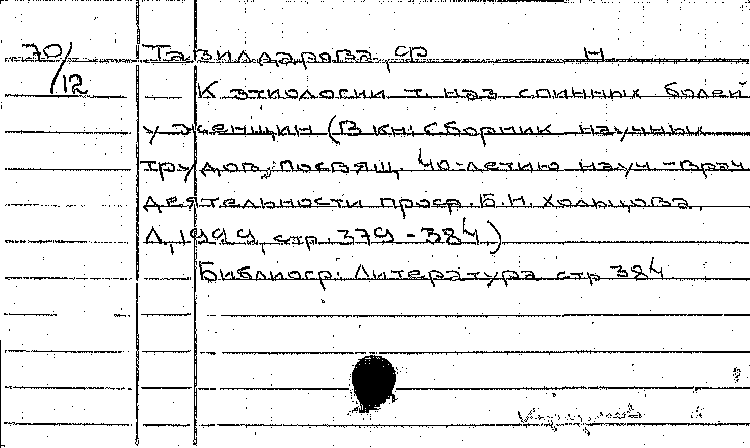 70/12 Тавилдарова, Ф Н
К этиологии т. наз спинных болей
у женщин (В кн: Сборник научных
трудов, посвящ. 40-летию науч.-врач
деятельности проф. Б.Н. Хольцова.
Л, 1999, стр. 379-384.)
Библиогр: Литература стр 384